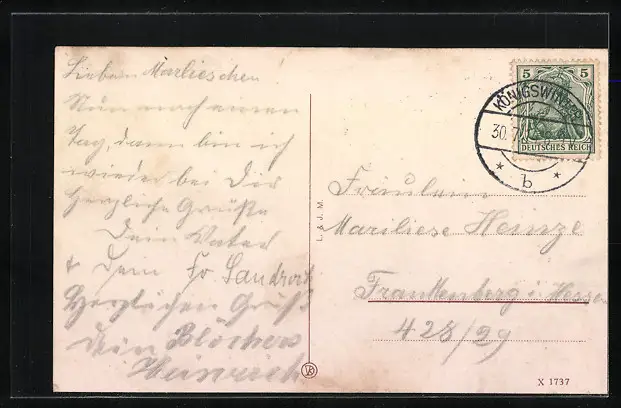 Lieben Marlieschen!
Nun noch einen
Tag, dann bin ich
wieder bei Dir
Herzliche Grüße
Dein Vater
& Dein Fr Sandrock
Herzlichen Gruß
Dein Blöchers
Heinrich
5 5
DEUTSCHES REICH
KÖNIGSWINTER
30.7
* b *
Fräulein
Mariliese Heinze
Frankenberg i. Hessen
428/29
L. & J. M.
X 1737